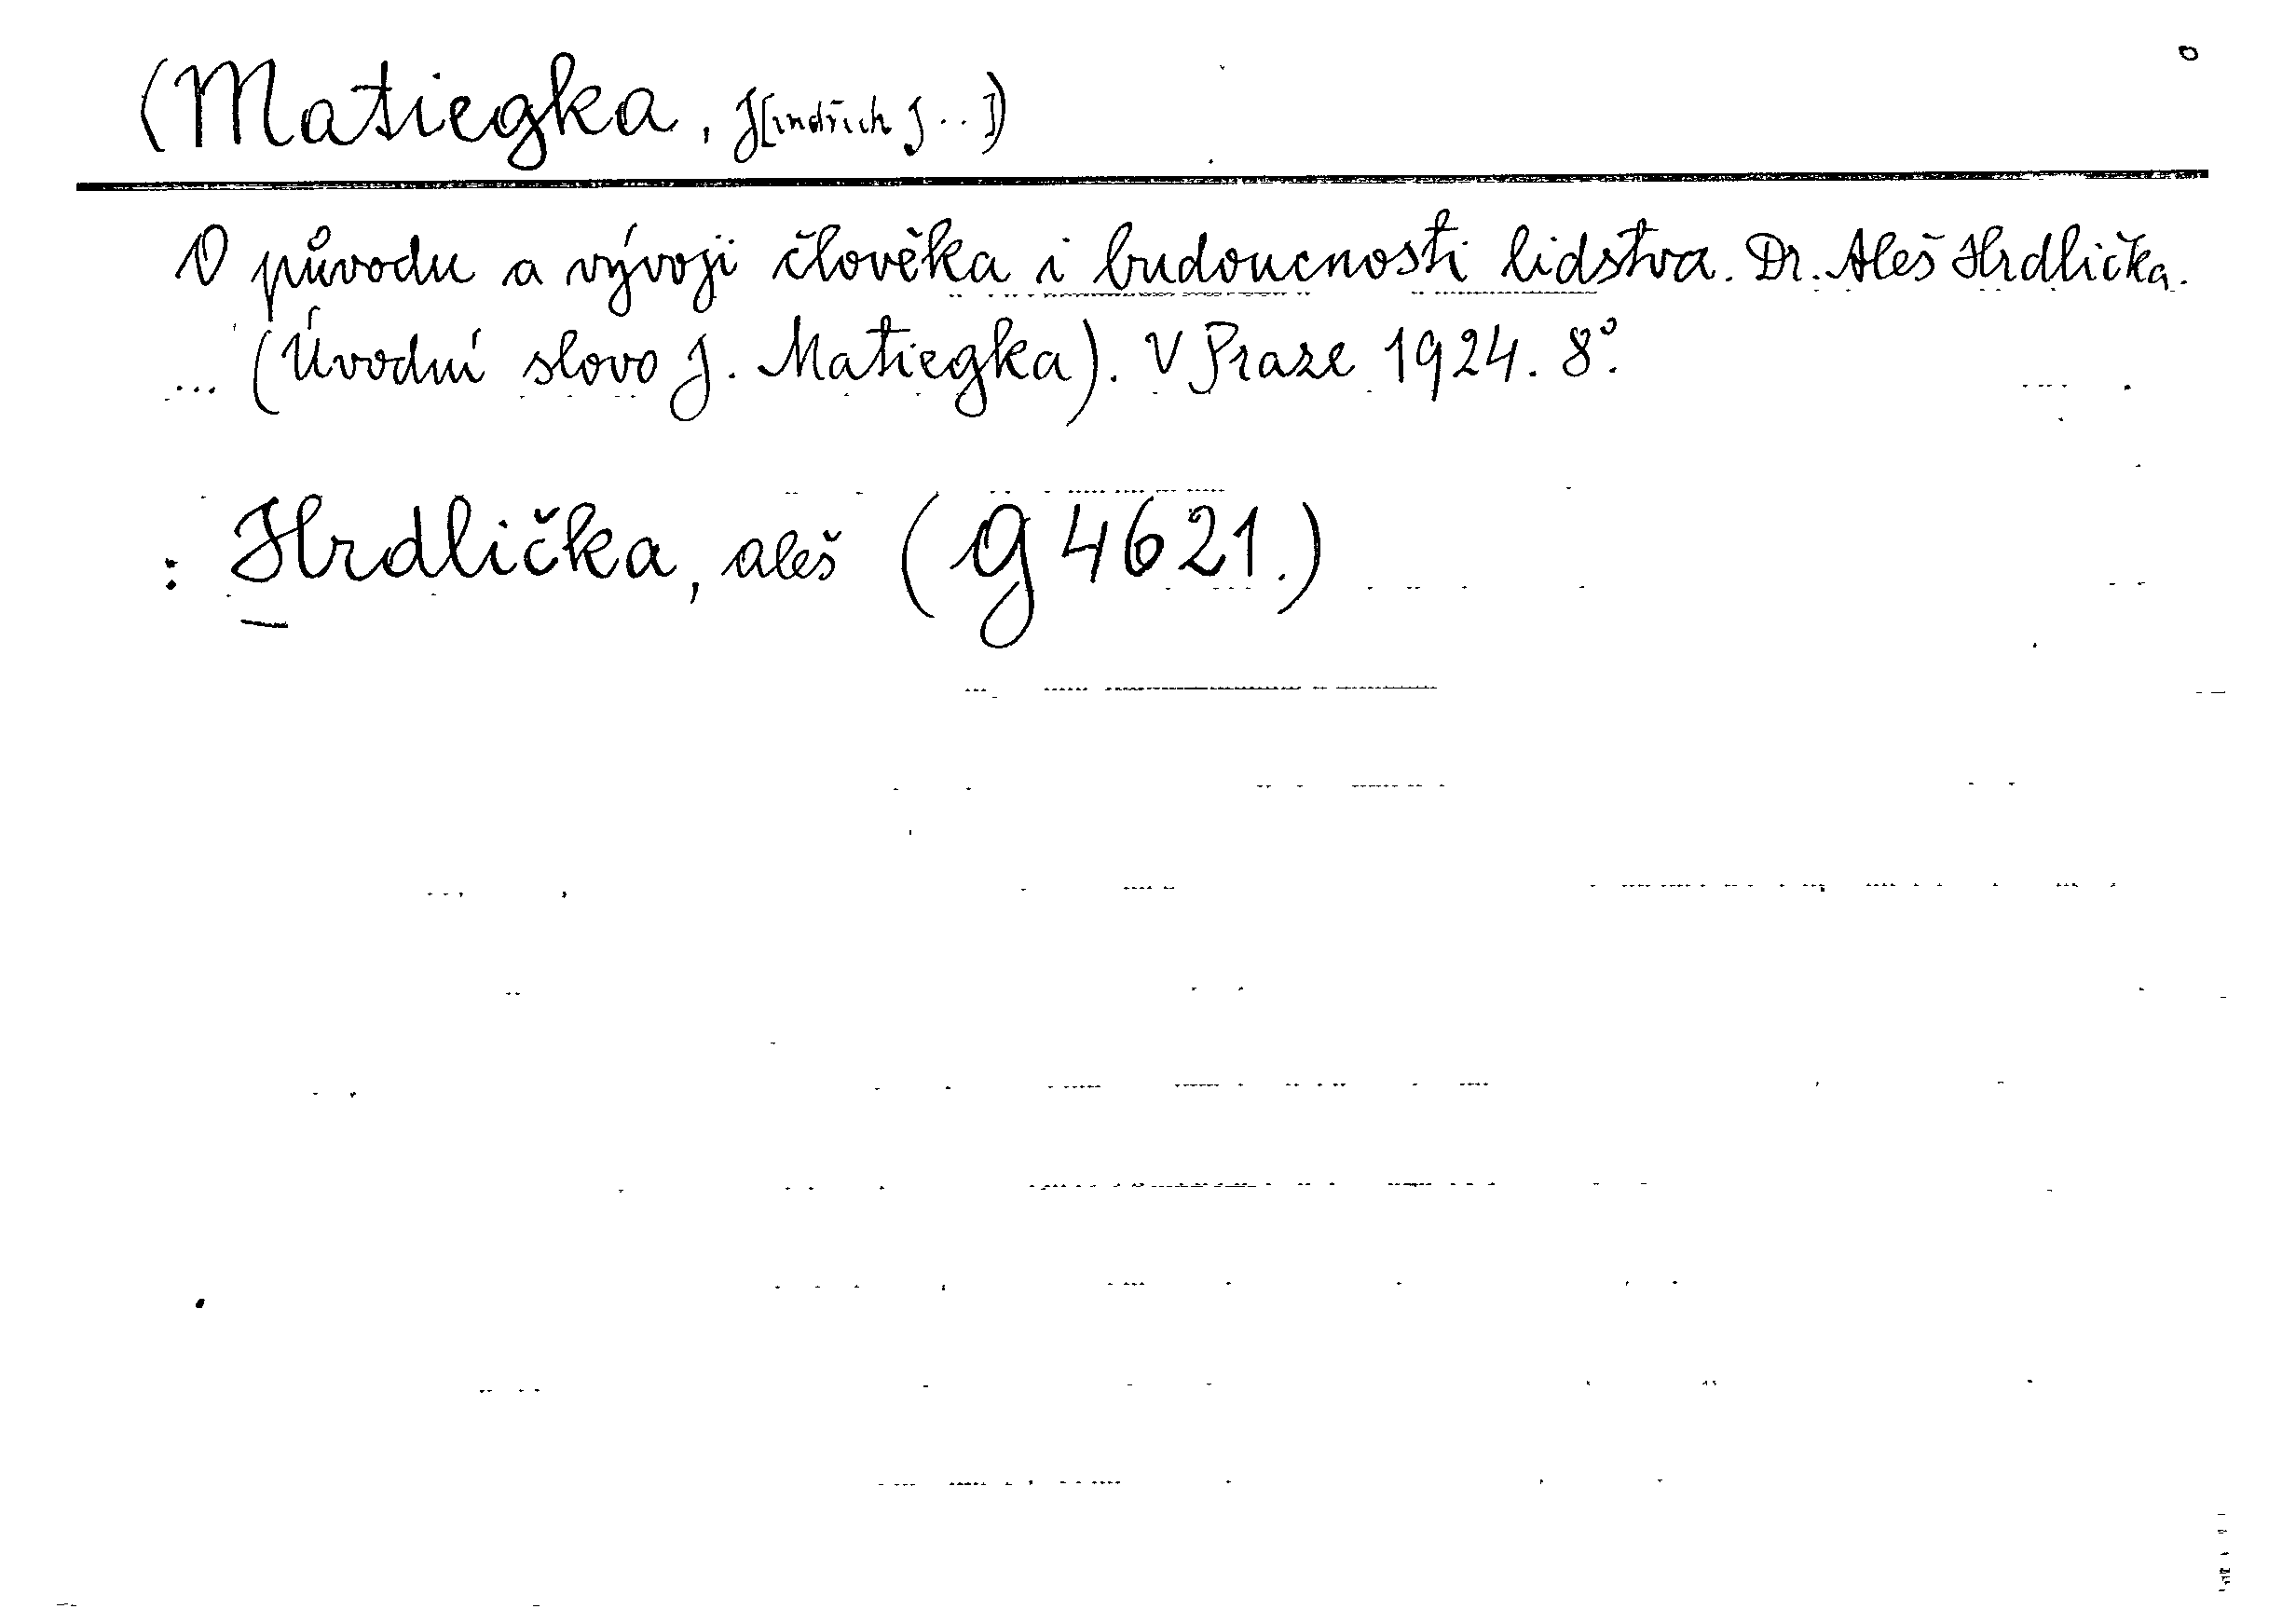 (Matiegka, J[indřich J...])
O původu a vývoji člověka i budoucnosti lidstva. Dr. Aleš Hrdlička.
... (Úvodní slovo J. Matiegka). V Praze 1924. 8°.
: Hrdlička, Aleš (g 4621.)